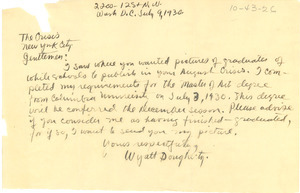 2200-12St. N.W.
Wash. D.C. July 9, 1930
10-43-26
The Crisis
New York City
Gentlemen:
I saw where you wanted pictures of graduates of
white schools to publish in your August Crisis. I com-
pleted my requirements for the Master of Arts degree
from Columbia University on July 3, 1930. This degree
will be conferred the December session. Please advise
if you consider me as having finished—graduated,
for if so, I want to send you my picture.
Yours respectfully,
Wyatt Dougherty.